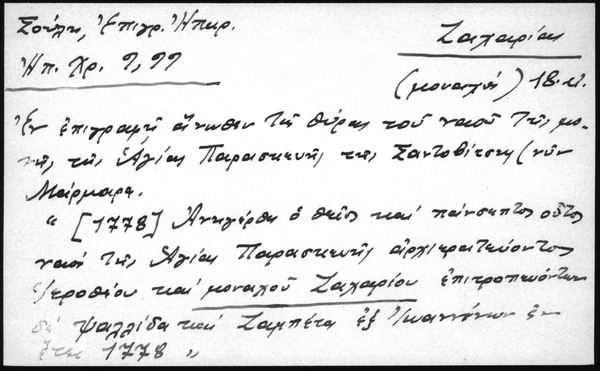 Σούλη, Ἐπιγρ. Ἠπειρ.
Ζαχαρίας
Ἠπ. Χρ. 9, 99
(μοναχός) 18. αἰ.
Ἐν ἐπιγραφῇ ἄνωθεν τῆς θύρας τοῦ ναοῦ τῆς μο-
νῆς τῆς Ἁγίας Παρασκευῆς τῆς Σαντοβίτσης (νῦν
Μάρμαρα.
" [1778] Ἀνηγέρθη ὁ θεῖος καί πάνσεπτος οὗτος
ναός τῆς Ἁγίας Παρασκευῆς ἀρχιερατεύοντος
Ἱεροθέου καί μοναχοῦ Ζαχαρίου ἐπιτροπευόντων
δέ Ψαλλίδα καί Ζαμπέτα ἐξ Ἰωαννίνων ἐν
ἔτει 1778 "